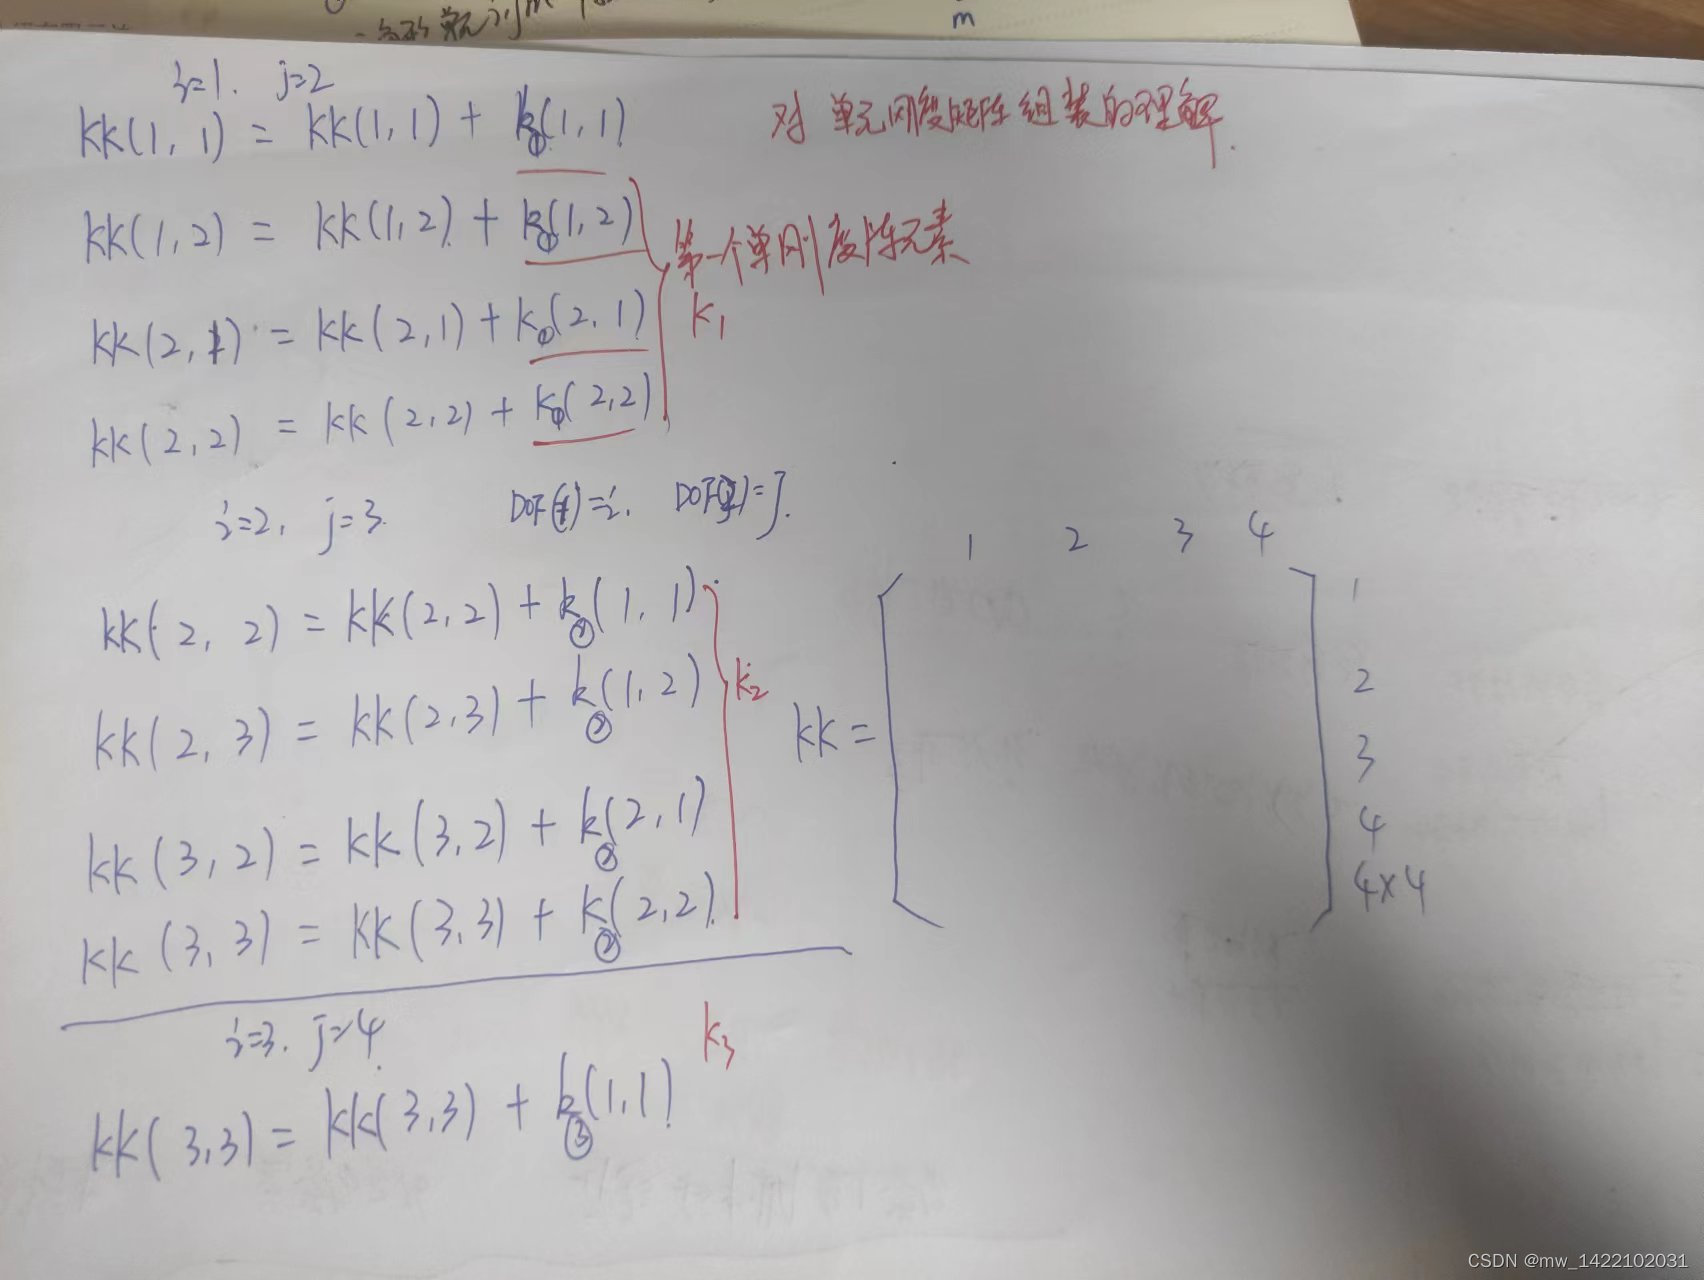 m
i=1. j=2
对单元刚度矩阵组装的理解.
kk(1,1) = kk(1,1) + k①(1,1)
kk(1,2) = kk(1,2) + k①(1,2)
第一个单刚度阵元素
k1
kk(2,1) = kk(2,1) + k①(2,1)
kk(2,2) = kk(2,2) + k①(2,2)
i=2, j=3. DOF(1)=i. DOF(2)=j.
kk(2,2) = kk(2,2) + k②(1,1)
kk(2,3) = kk(2,3) + k②(1,2)
k2
kk(3,2) = kk(3,2) + k②(2,1)
kk(3,3) = kk(3,3) + k②(2,2)
1 2 3 4
1
2
kk =
3
4
4×4
i=3. j=4
k3
kk(3,3) = kk(3,3) + k③(1,1)
CSDN @mw_1422102031